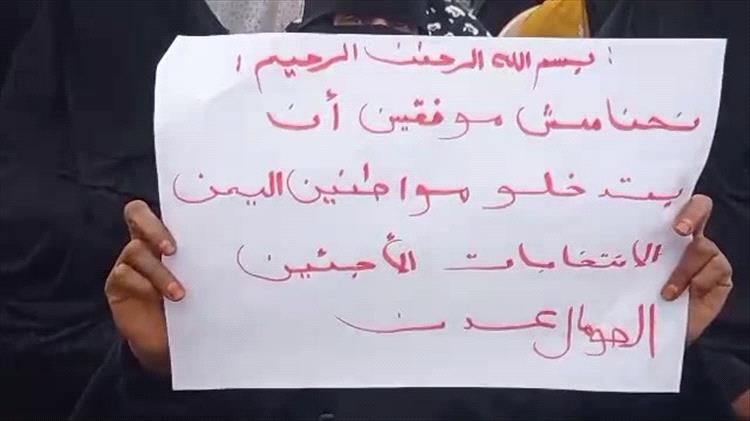 : بسم الله الرحمن الرحيم :
نحنا مش موفقين أن
يتدخلو مواطنين اليمن
الانتخابات الأجئين
الصومال عدن